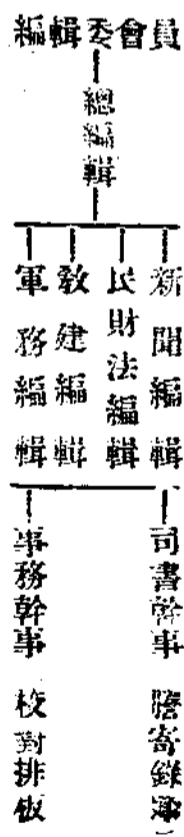 編輯委會員
總編輯
新聞編輯
民財法編輯
教建編輯
軍務編輯
司書幹事 謄寄錄
事務幹事 校對排板